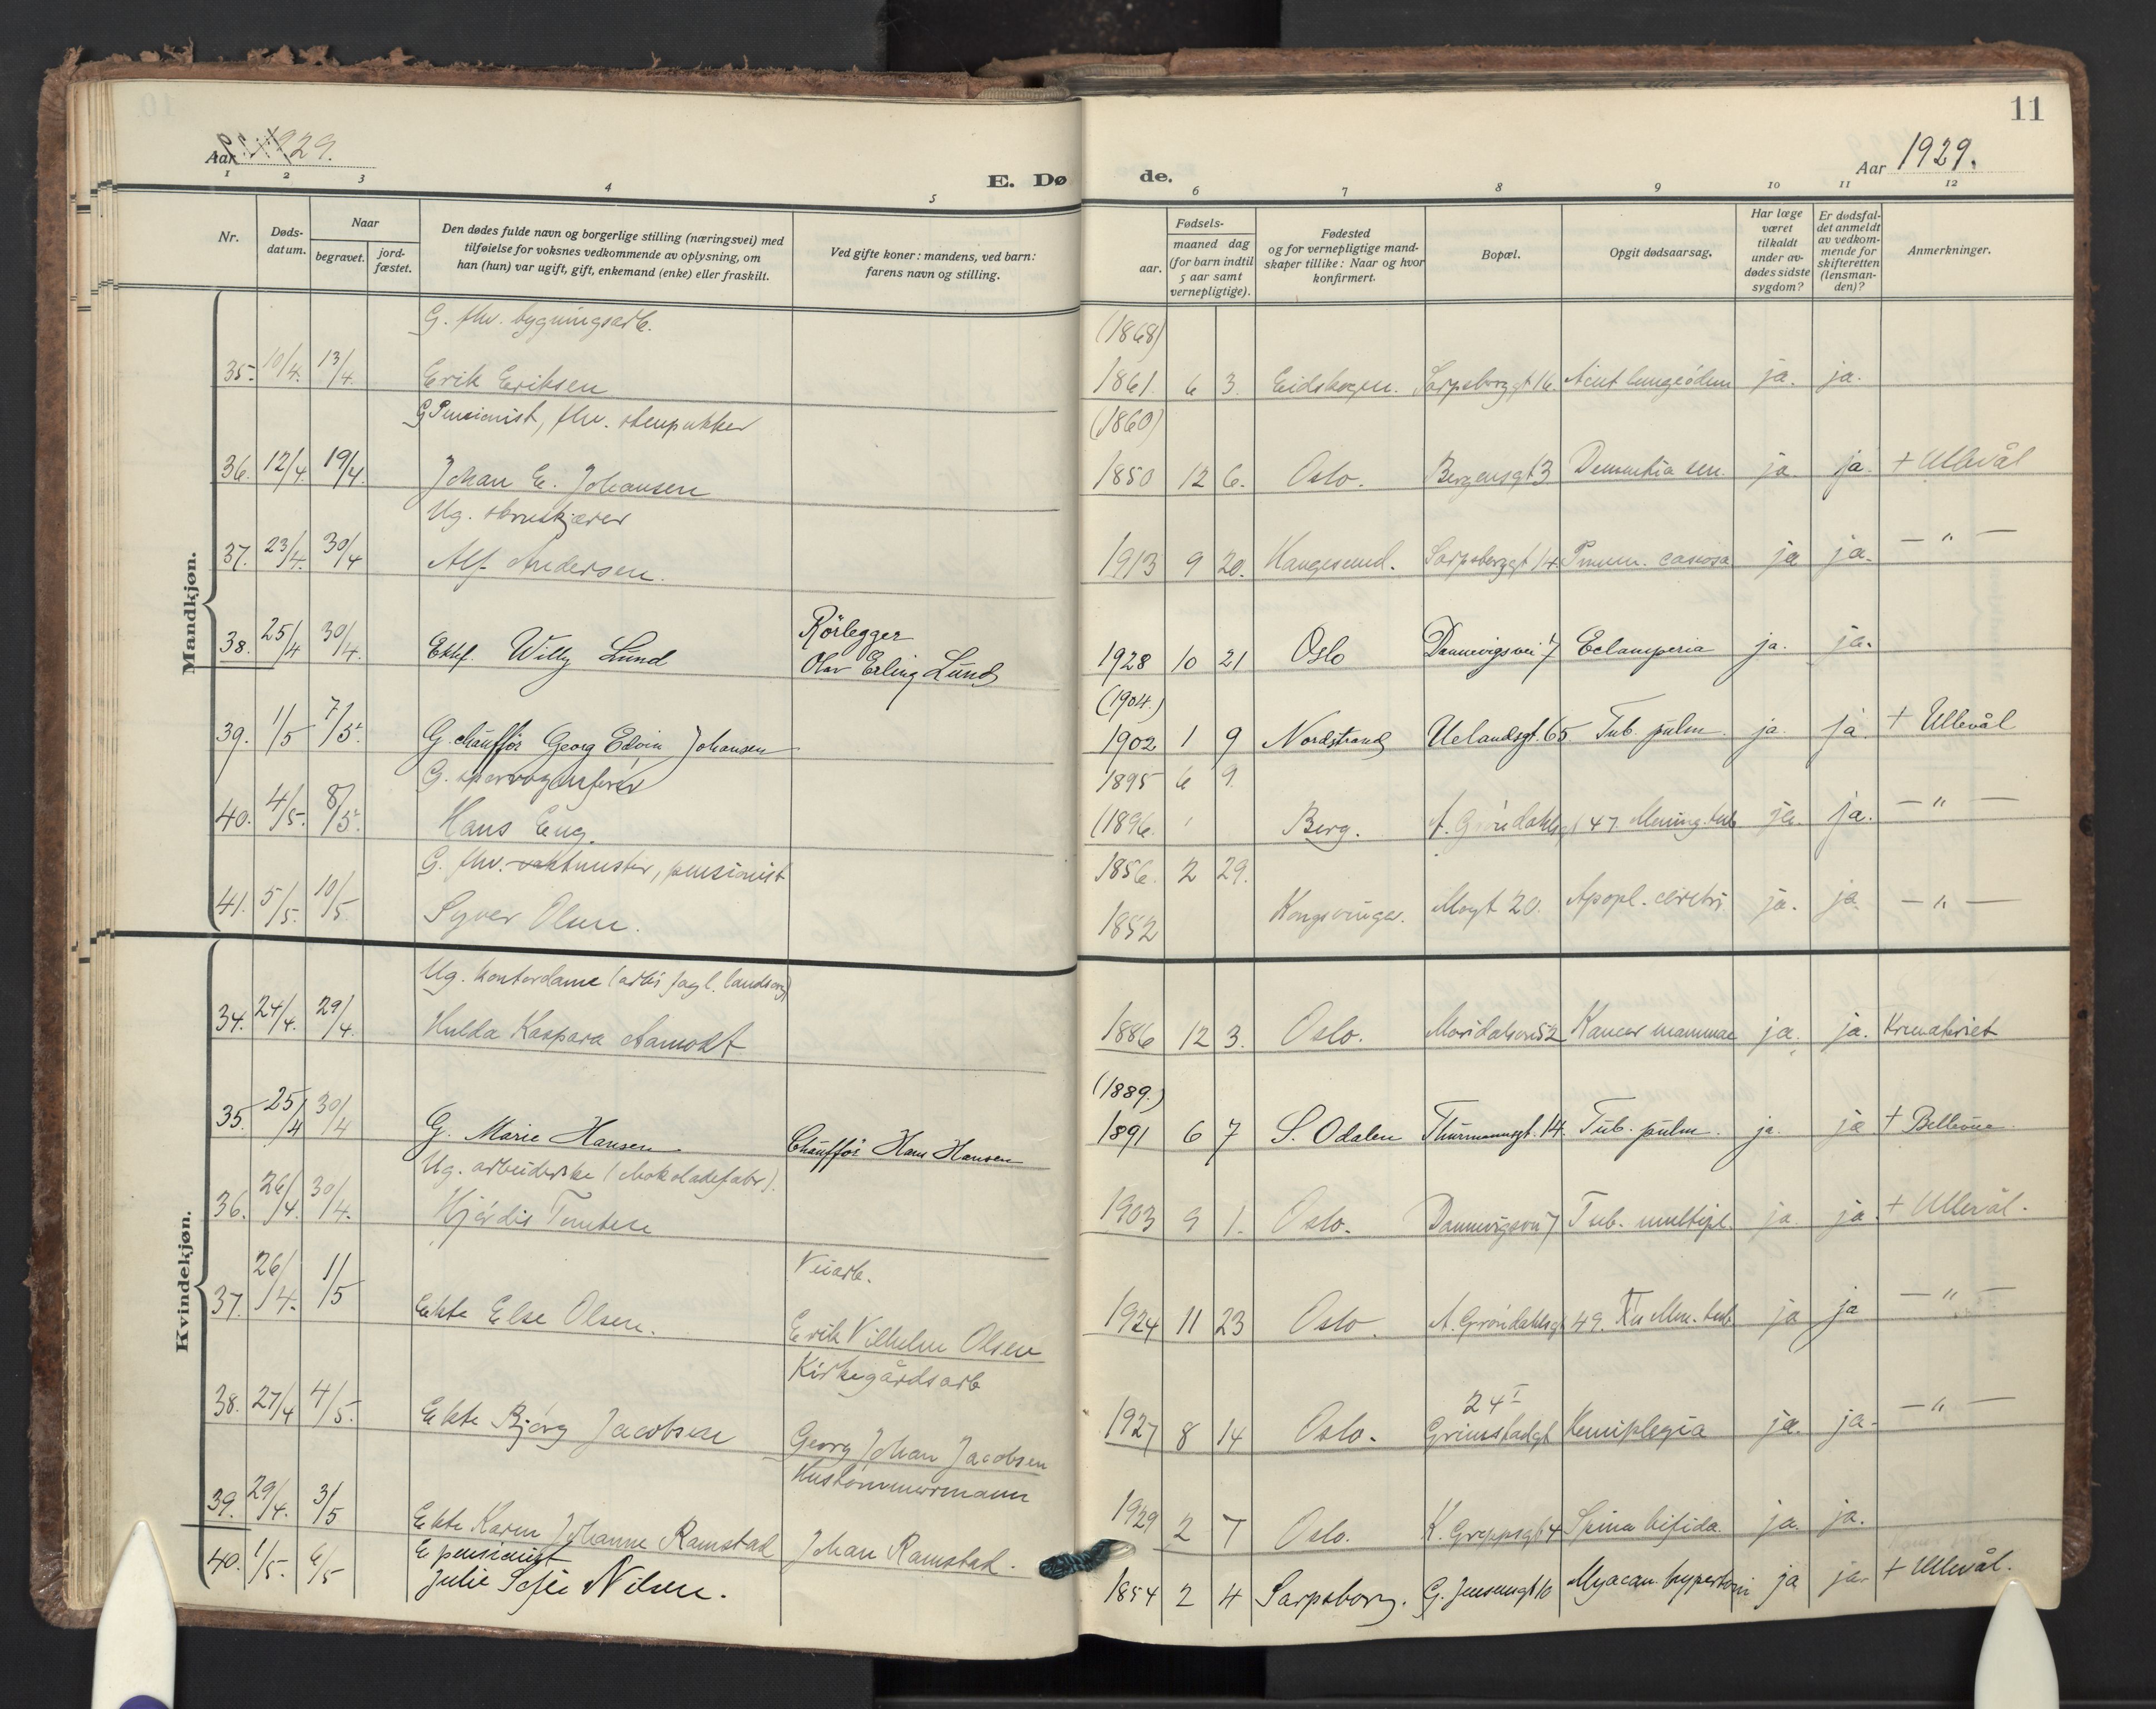 11
Aar 1929.
Aar 1929.
E. Dø de.
1 2 3 4 5 6 7 8 9 10 11 12
Nr.
Døds-
datum.
Naar
begravet.
jord-
fæstet.
Den dødes fulde navn og borgerlige stilling (næringsvei) med
tilføielse for voksnes vedkommende av oplysning, om
han (hun) var ugift, gift, enkemand (enke) eller fraskilt.
Ved gifte koner: mandens, ved barn:
farens navn og stilling.
Fødsels-
aar.
maaned dag
(for barn indtil
5 aar samt
vernepligtige).
Fødested
og for vernepligtige mand-
skaper tillike: Naar og hvor
konfirmert.
Bopæl.
Opgit dødsaarsag.
Har læge
været
tilkaldt
under av-
dødes sidste
sygdom?
Er dødsfal-
det anmeldt
av vedkom-
mende for
skifteretten
(lensman-
den)?
Anmerkninger.
Mandkjøn.
G. fhv. bygningsarb. (1868)
35. 10/4. 13/4. Erik Eriksen 1861. 6 3. Eidskogen. Sarpsborggt 16. Acut lungeödem ja. ja.
G Pensionist, fhv. stenpukker (1860)
36. 12/4. 19/4. Johan E. Johansen 1850 12 6. Oslo. Bergensgt 3. Dementia sen. ja. ja. + Ullevål
Ug. skruskjærer
37. 23/4. 30/4 Alf Andersen. 1913 9 20. Haugesund. Sarpsborggt 14. Pneum. caseosa ja ja. — " —
Rörlegger
38. 25/4 30/4. Ektef. Willy Lund Olav Erling Lund 1928 10 21 Oslo Dannevigsvei. 7 Eclampsia ja. ja.
(1904.)
39. 1/5 7/5. G. chaufför Georg Edvin Johansen 1902 1 9 Nordstrand Uelandsgt. 65. Tub. pulm. ja. ja. + Ullevål
G. sporvognsfører 1895 6 9
40. 4/5. 8/5. Hans Eng. (1896. Berg. A. Gröndahlsgt 47. Mening. tub. ja. ja. — " —
G. fhv. vaktmester, pensionist 1856. 2 29.
41. 5/5. 10/5. Syver Olsen. 1852 Kongsvinger. Mogt 20. Apopl. cerebri ja. ja — " —
Kvindekjøn.
Ug. kontordame
34. 24/4. 29/4. Hulda Kaspara Aamodt 1886 12 3. Oslo. Maridalsvei 52 Kancer mammae ja. ja. Krematoriet
(1889.)
35. 25/4 30/4 G. Marie Hansen Chaufför Hans Hansen 1891 6 7 S. Odalen Thurmannsgt. 14. Tub. pulm. ja. ja + Bellevue
Ug. arbeiderske (chokoladefabr).
36. 26/4. 30/4. Hjördis Tomtese 1903 9 1. Oslo. Dannevigsvei 7. Tub. multipl. ja ja. + Ullevål.
Veiarb.
37. 26/4. 1/5 Ekte Else Olsen. Erik Vilhelm Olsen 1924 11 23 Oslo. A. Gröndahlsgt 49. Men. tub. ja ja — " —
Kirkegårdsarb 24 I
38. 27/4 4/5. Ekte Bjørg Jacobsen Georg Johan Jacobsen 1927 8 14 Oslo. Grimstadgt Hemiplegia ja. ja. — " —
Hustömmermann
39. 29/4. 3/5 Ekte Karen Johanne Ramstad Johan Ramstad. 1929 2 7 Oslo. K. Greppsgt 4 Spina bifida. ja. ja.
E pensionist
40. 1/5. 6/5 Julie Sofie Nilsen. 1854 2 4 Sarpsborg. G. Jensensgt 10 ja ja. + Ullevål.